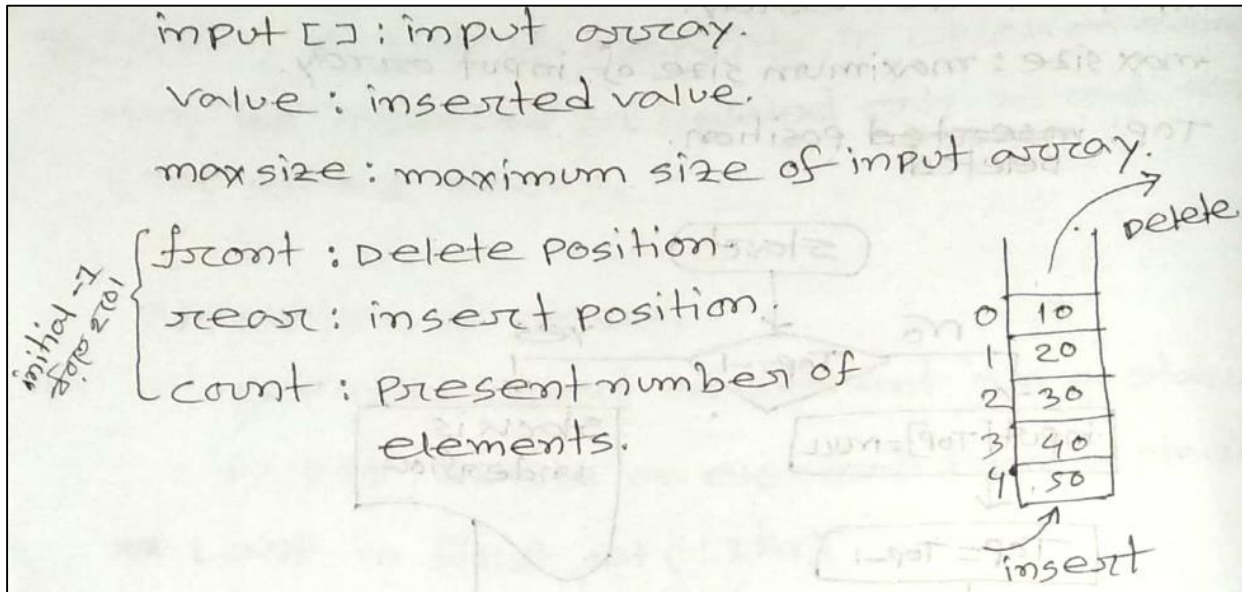 input []: input array.
value: inserted value.
maxsize: maximum size of input array.
front: Delete position.
rear: insert position.
count: present number of
elements.
initial -1
Delete
0 10
1 20
2 30
3 40
4 50
insert